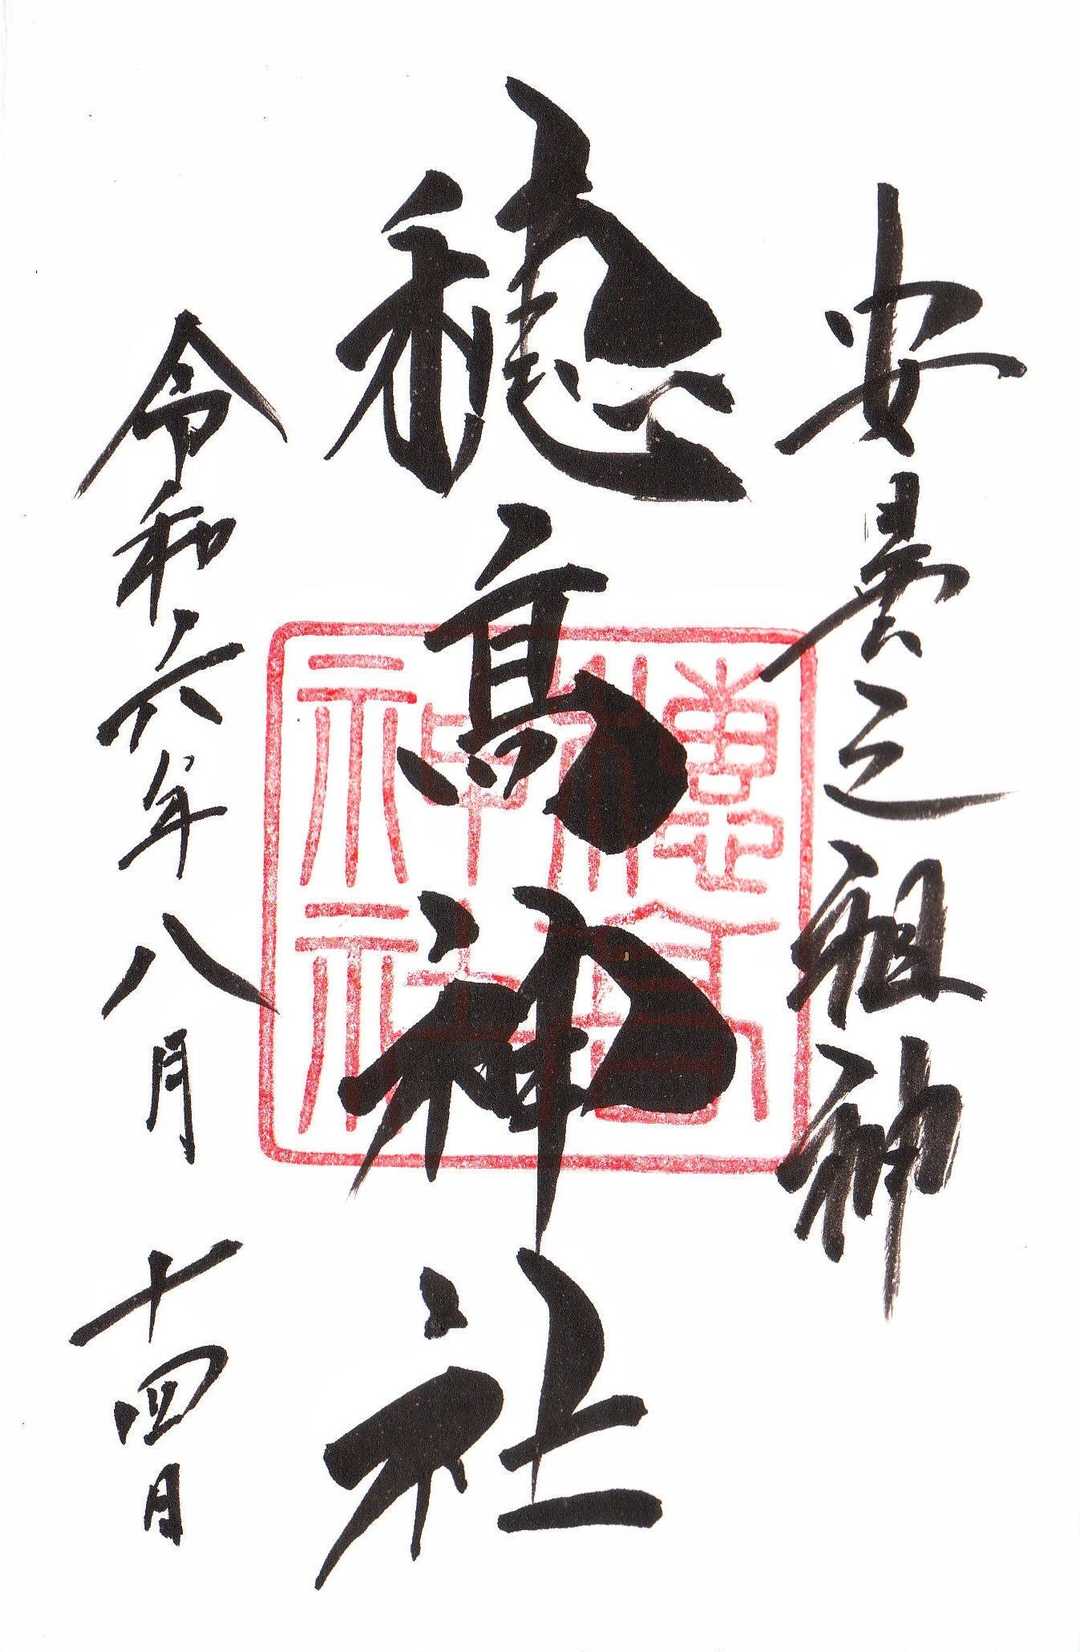 安曇之祖神
穗髙神社
令和六年八月十四日
穗高
神社